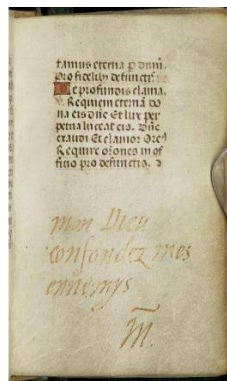 tamus eterna p dnm.
Pro fidelib9 defunctis
De profundis clama.
Requiem eternā do
na eis dñe Et lux per
petua luceat eis. Dñe
exaudi Et clamor Orem9
Require orōnes in of
ficio pro defunctis.
mon Dieu
confondez mes
ennemys
M.